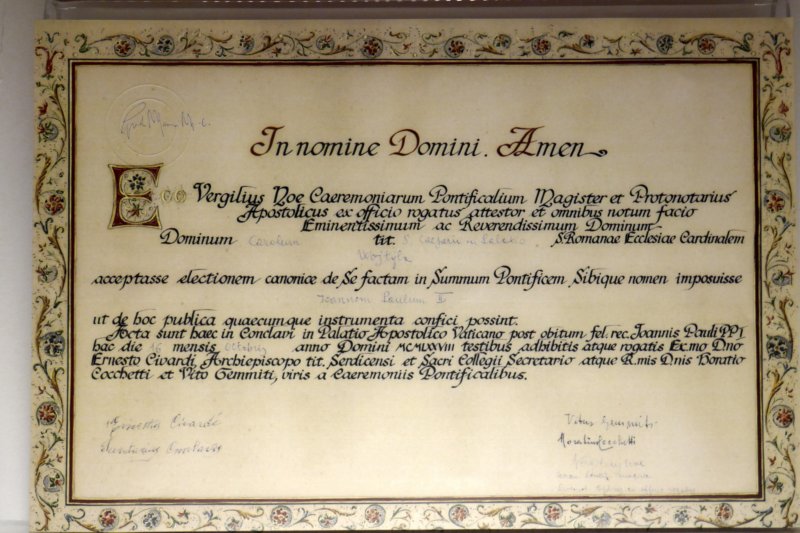 In nomine Domini. Amen
EGO Vergilius Noe Caeremoniarum Pontificalium Magister et Protonotarius
Apostolicus ex officio rogatus attestor et omnibus notum facio
Eminentissimum ac Reverendissimum Dominum
Dominum Carolum tit. S. S.Romanae Ecclesiae Cardinalem
Wojtyla
acceptasse electionem canonice de Se factam in Summum Pontificem, Sibique nomen imposuisse
Ioannem Paulum II
ut de hoc publica quaecumque instrumenta confici possint.
Acta sunt haec in Conclavi in Palatio Apostolico Vaticano post obitum fel. rec. Ioannis Pauli PP.I
hac die mensis Octobris anno Domini MCMLXXVIII testibus adhibitis atque rogatis Ec.mo Dno
Ernesto Civardi, Archiepiscopo tit. Serdicensi et Sacri Collegii Secretario atque R.mis Dnis Horatio
Cocchetti et Vito Gemmiti, viris a Caeremoniis Pontificalibus.
Ernestus Civardi
Vitus Gemmiti
Horatius Cocchetti